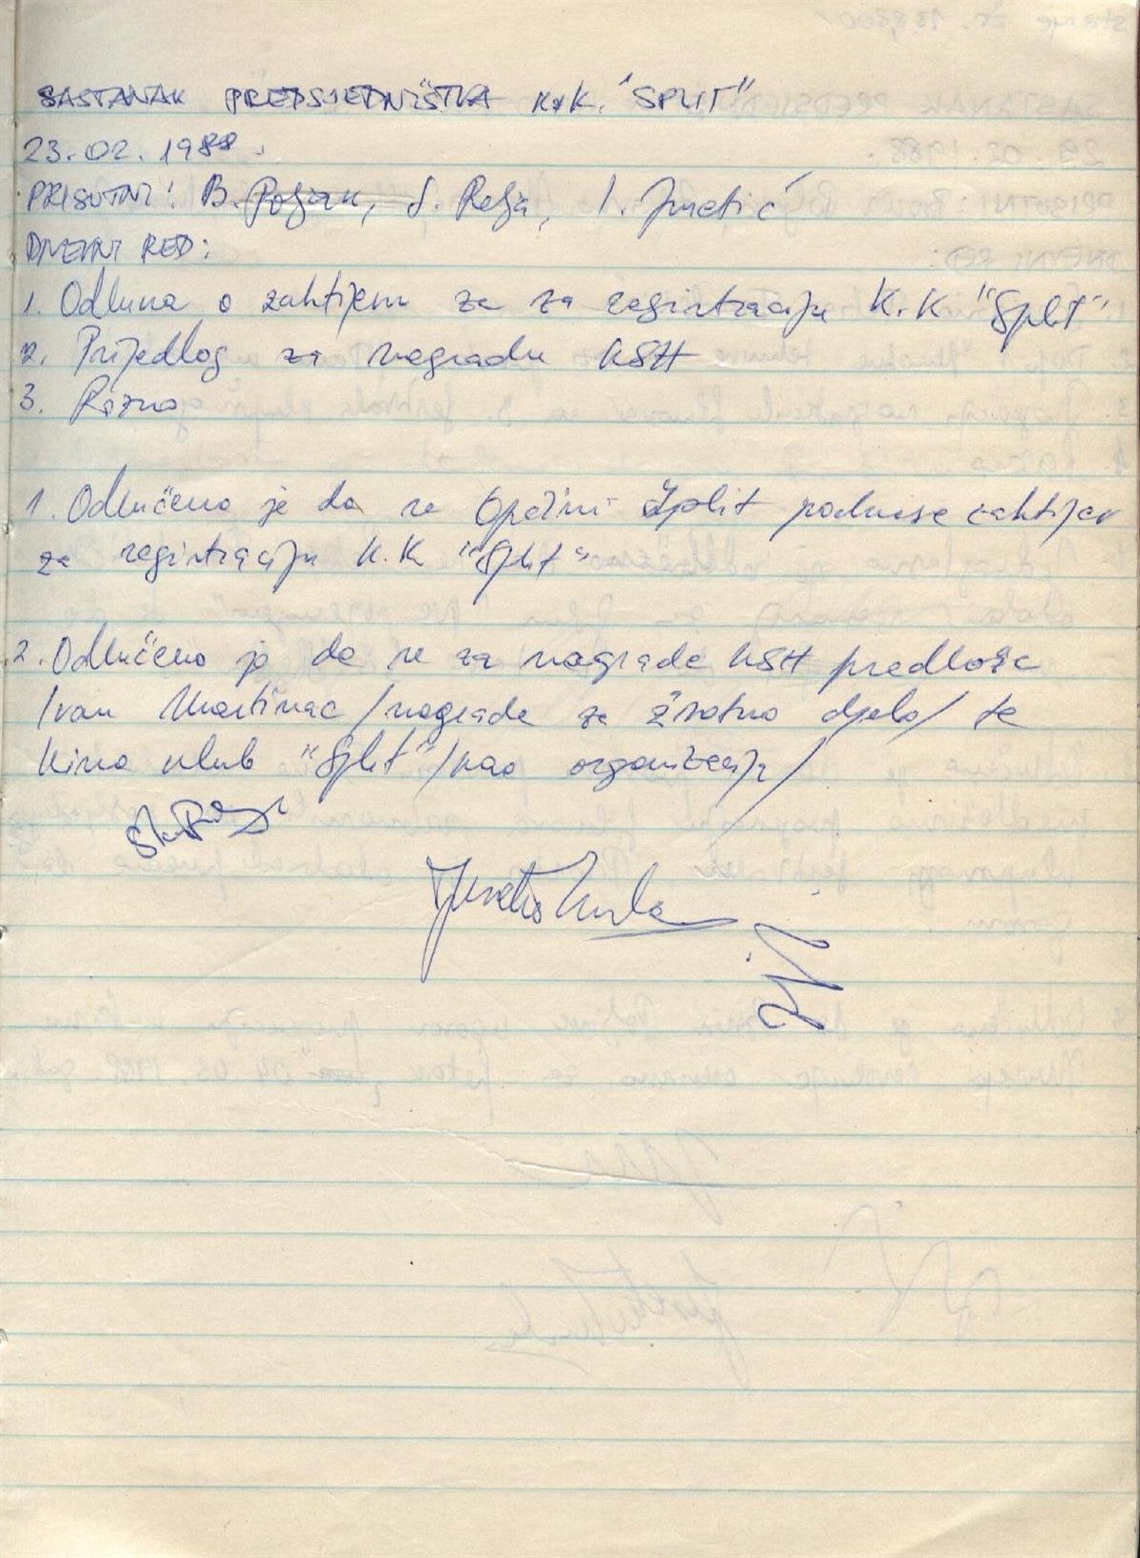 SASTANAK PREDSJEDNIŠTVA K.K. "SPLIT"
23.02.1988.
PRISUTNI: B. Poljak, S. Relja, I. Juretić
DNEVNI RED:
1. Odluka o zahtijevu za za registraciju K.K "Split"
2. Prijedlog za nagradu KSH
3. Razno
1. Odlučeno je da se Općini Split podnese zahtijev
za registraciju K.K "Split"
2. Odlučeno je da se za nagrade KSH predlože
Ivan Martinac /nagrada za životno djelo/ te
Kino klub "Split" /kao organizacija/